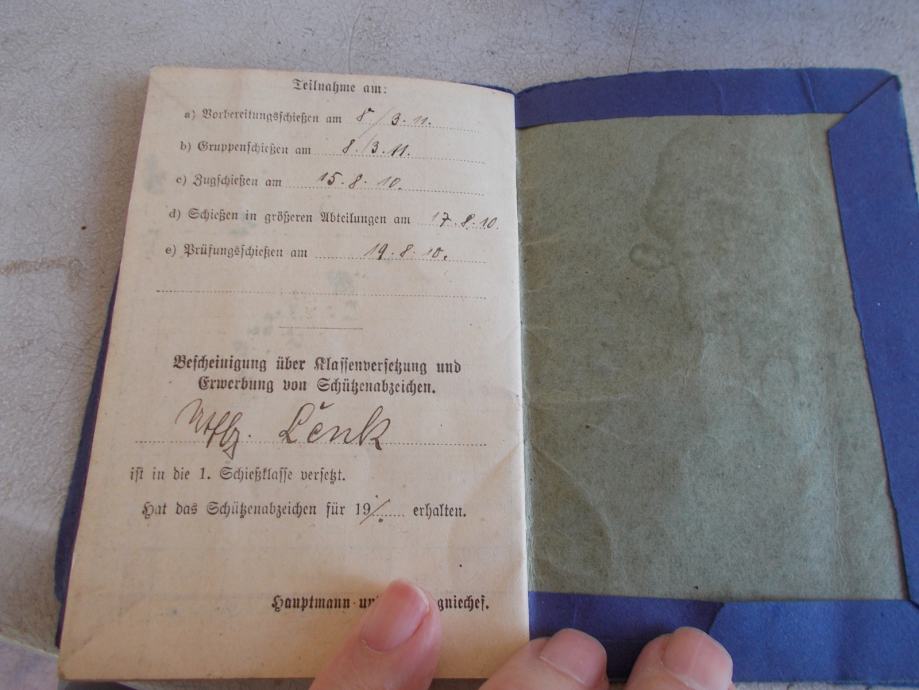 Teilnahme am:
a) Vorbereitungsschießen am 8./3. 11.
b) Gruppenschießen am 8. 3. 11.
c) Zugschießen am 15. 8. 10.
d) Schießen in größeren Abteilungen am 17. 8. 10.
e) Prüfungsschießen am 19. 8. 10.
Bescheinigung über Klassenversetzung und
Erwerbung von Schützenabzeichen.
Utffz. Lenk
ist in die 1. Schießklasse versetzt.
Hat das Schützenabzeichen für 19/. erhalten.
Hauptmann un gniechef.